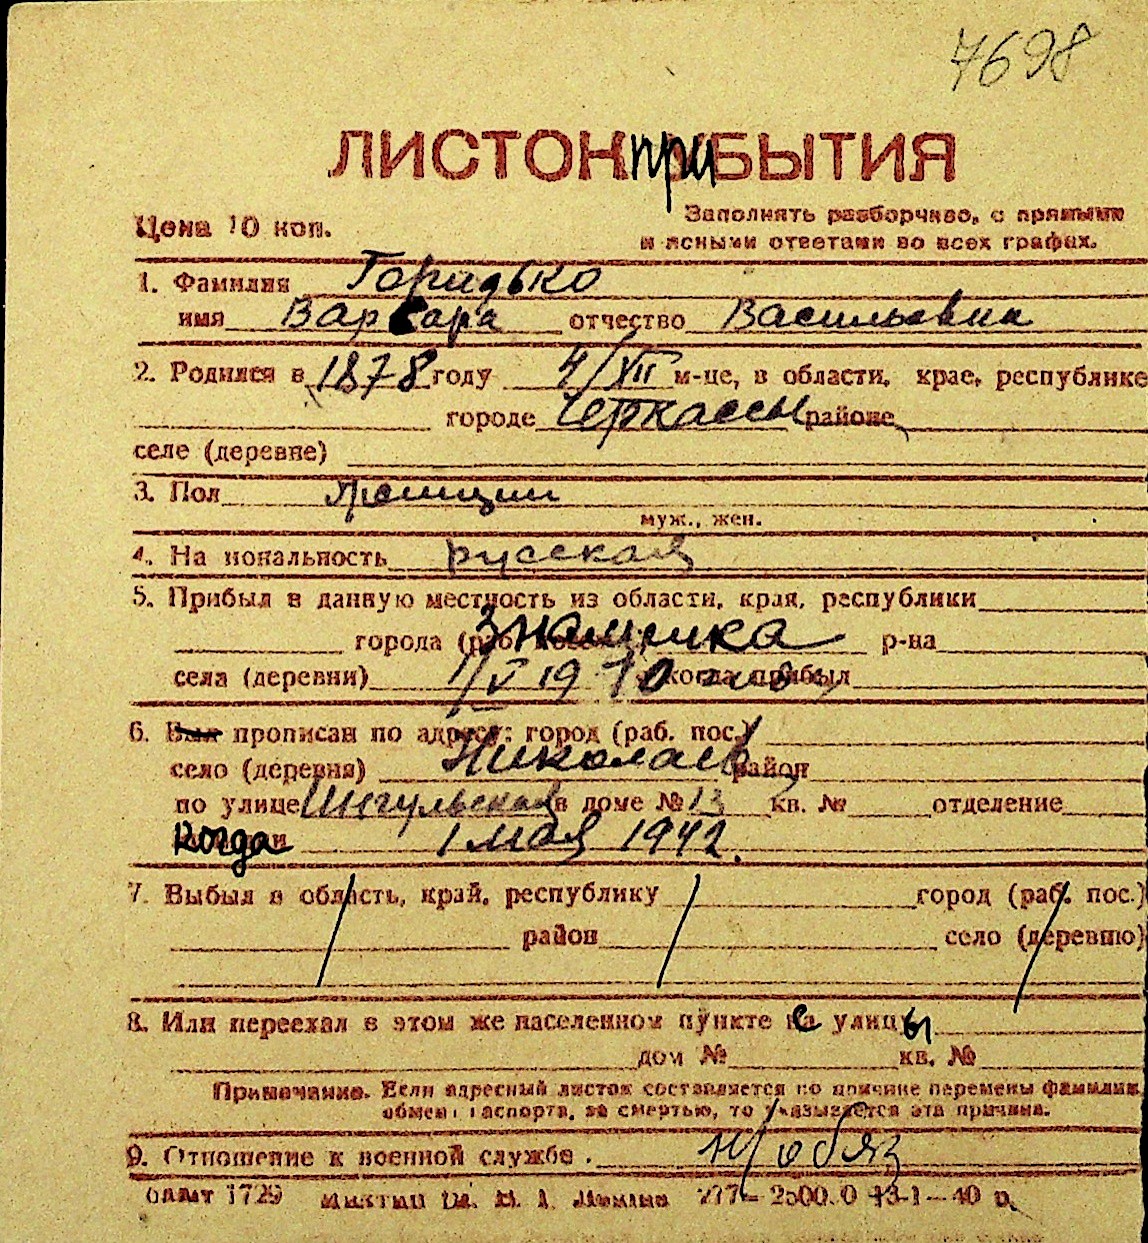 7698
ЛИСТОК ПРИБЫТИЯ
Цена 10 коп.
Заполнять разборчиво, с прямыми
и ясными ответами во всех графах.
1. Фамилия
имя Варвара отчество Васильевна
2. Родился в 1878 году 4/VII м-це, в области, крае, республике
городе Черкассы районе
селе (деревне)
3. Пол женщин
муж., жен.
4. Национальность русская
5. Прибыл в данную местность из области, края, республики
города (раб. Знаменка р-на
села (деревни) 1/V 19 когда прибыл
6. Был прописан по адресу: город (раб. пос.)
село (деревня) Николаев район
по улице Ингульская в доме № 13 кв. № отделение
когда 1 мая 1942.
7. Выбыл в область, край, республику город (раб. пос.)
район село (деревню)
8. Или переехал в этом же населенном пункте с улицы
дом № кв. №
Примечание. Если адресный листок составляется по причине перемены фамилии,
обмена паспорта, за смертью, то указывается эта причина.
9. Отношение к военной службе. н/обяз
1729 им. В. И. Ленина 777—2500.0 13-1—40 р.